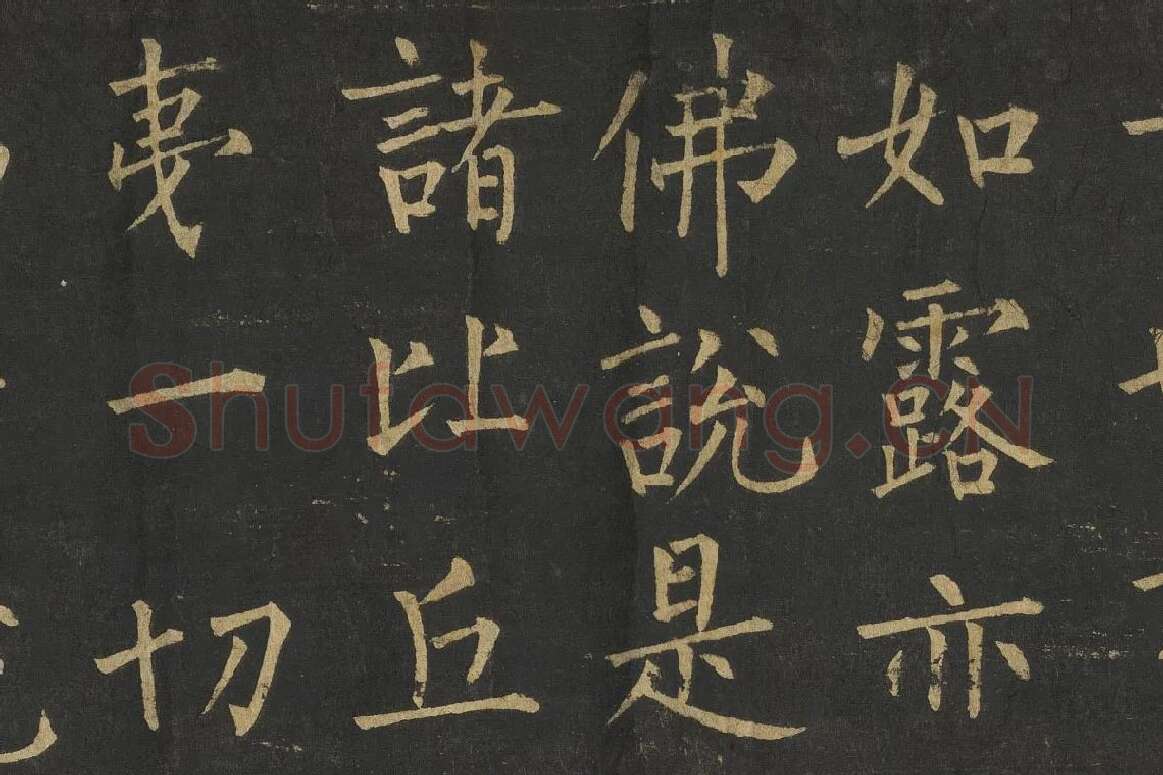 如露亦
佛說是
諸比丘
夷一切
Shufawang.CN